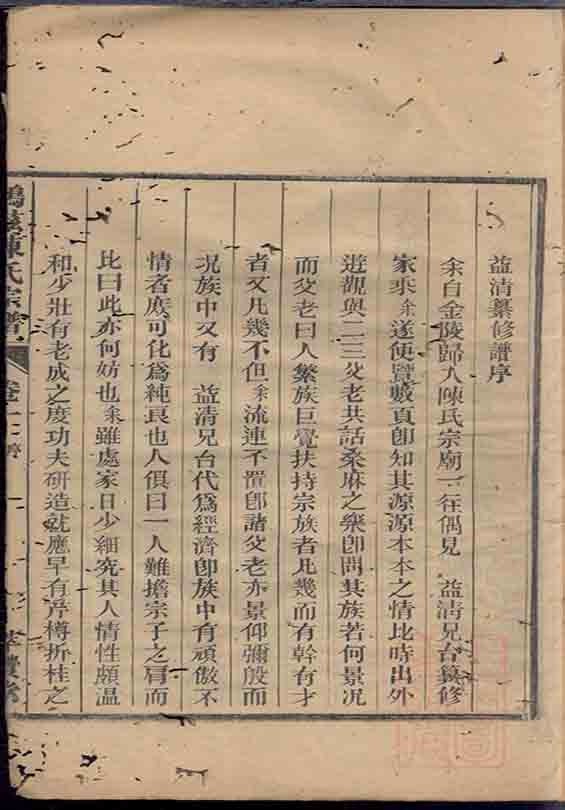 益清纂修譜序
余自金陵歸入陳氏宗廟一往偶見 益清兄台纂修
家乘余遂便覽數頁卽知其源源本本之情比時出外
遊觀與二三父老共話桑麻之樂卽問其族若何景况
而父老曰人繁族巨覺扶持宗族者凡幾而有幹有才
者又凡幾不但余流連不置卽諸父老亦景仰彌殷而
况族中又有 益清兄台代爲經濟卽族中有頑傲不
情者庶可化爲純良也人俱曰一人難擔宗子之肩而
比曰此亦何妨也余雖處家日少細究其人情性頗温
和少壯有老成之度功夫研造就應早有芹樽折桂之
陳氏宗譜 卷 序